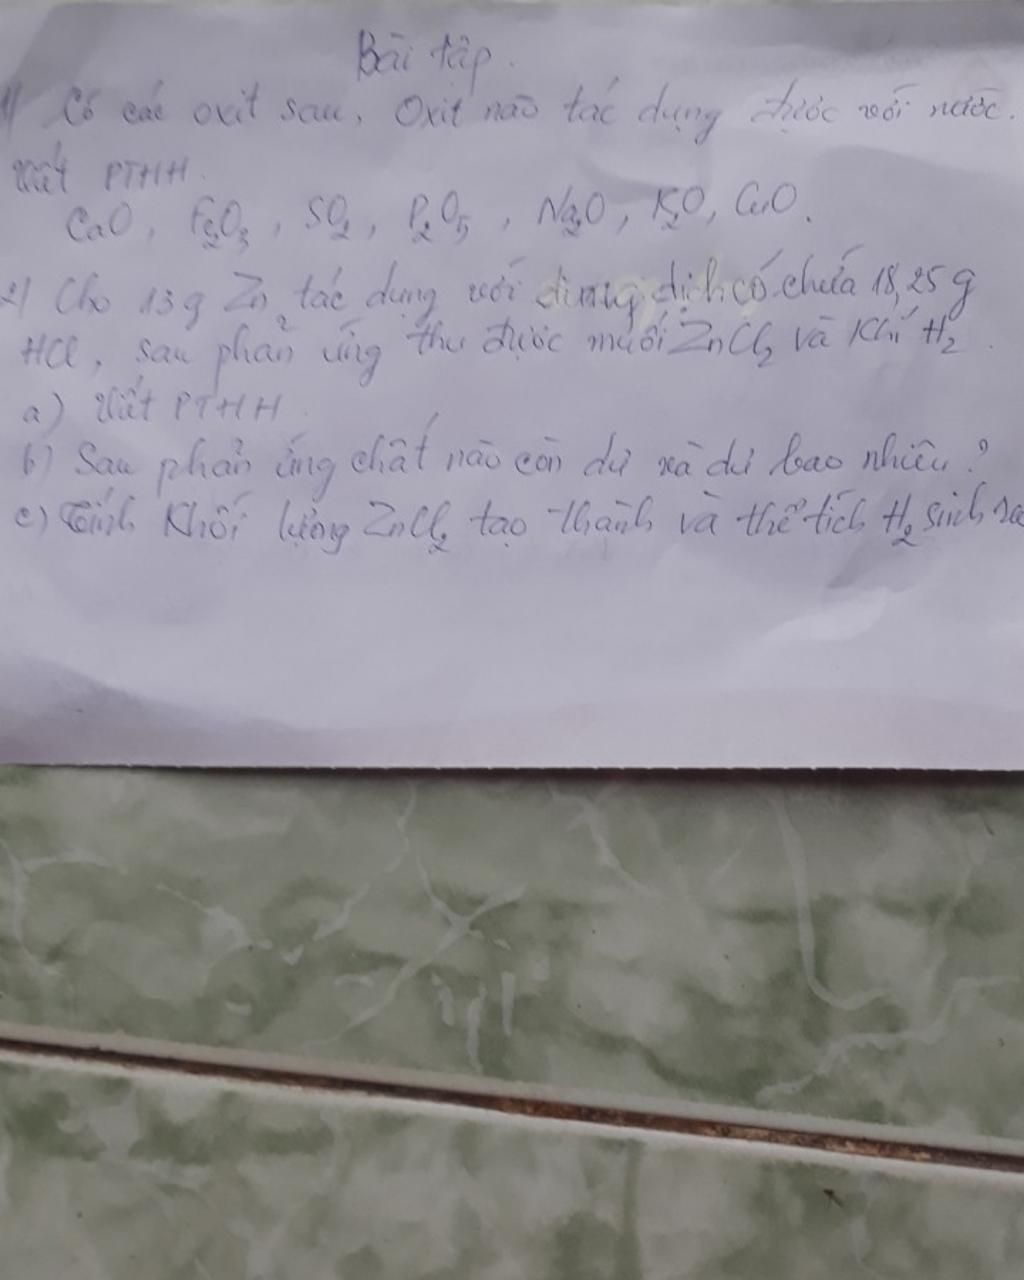 Bài tập.
1) Có các oxit sau, Oxit nào tác dụng được với nước.
Viết PTHH.
CaO, Fe₂O₃, SO₂, P₂O₅, Na₂O, K₂O, CuO.
2) Cho 13g Zn tác dụng với dung dịch có chứa 18,25g
HCl, sau phản ứng thu được muối ZnCl₂ và Khí H₂.
a) Viết PTHH
b) Sau phản ứng chất nào còn dư và dư bao nhiêu?
c) Tính Khối lượng ZnCl₂ tạo thành và thể tích H₂ sinh ra